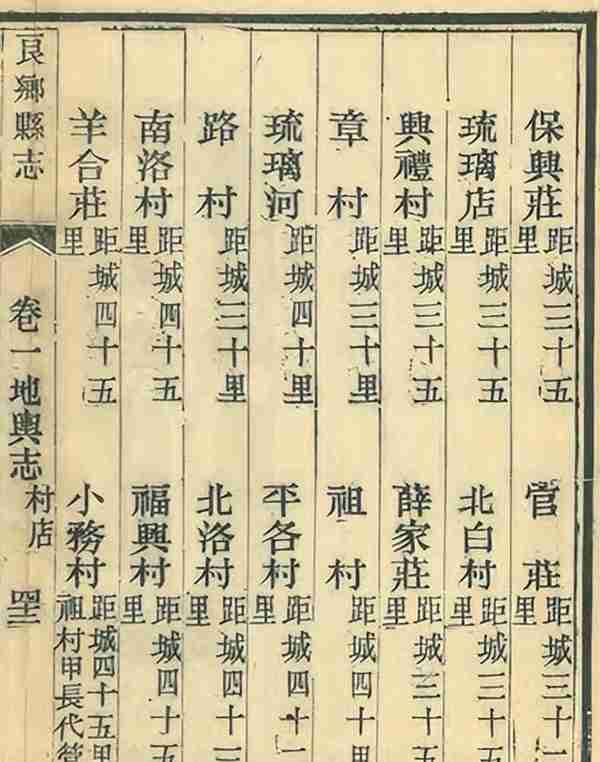 保興莊 距城三十五里 管莊 距城三十里
琉璃店 距城三十五里 北白村 距城三十五里
興禮村 距城三十五里 薛家莊 距城三十五里
章村 距城三十里 祖村 距城四十里
琉璃河 距城四十里 平各村 距城四十里
路村 距城三十里 北洛村 距城四十里
南洛村 距城四十五里 福興村 距城四十五里
羊合莊 距城四十五里 小務村 距城四十五里祖村甲長代管
良鄉縣志 卷一地輿志 村店